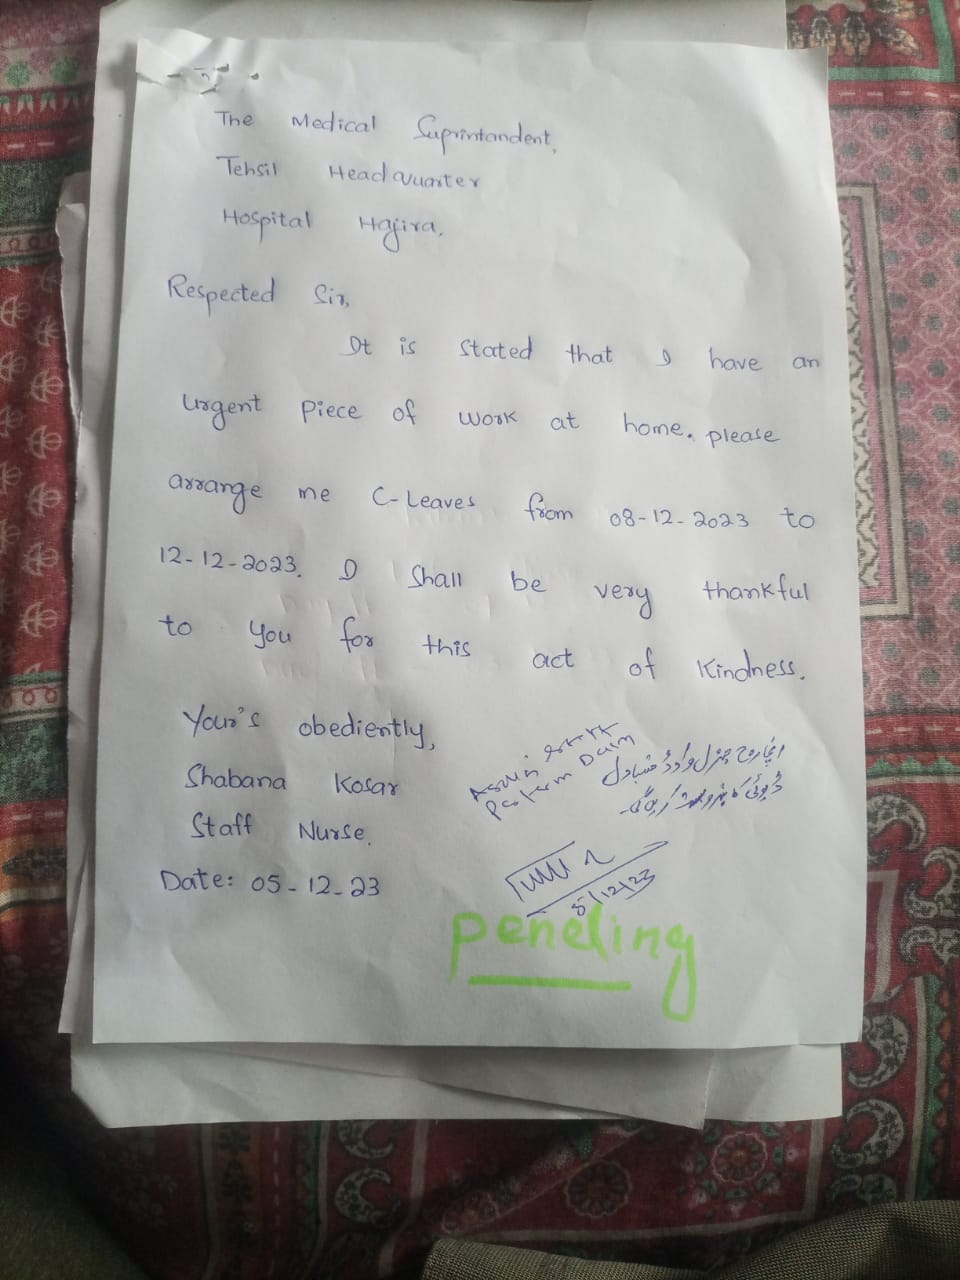 The Medical Suprintandent,
Tehsil HeadQuarter
Hospital Hajira,
Respected Sir,
It is stated that I have an
urgent piece of work at home. please
arrange me C-Leaves from 08-12-2023 to
12-12-2023. I Shall be very thankful
to you for this act of Kindness.
Your's obediently,
Shabana Kosar
Staff Nurse.
Date: 05-12-23
انچارج جنرل وارڈ متبادل
ڈیوٹی کا
5/12/23
pending